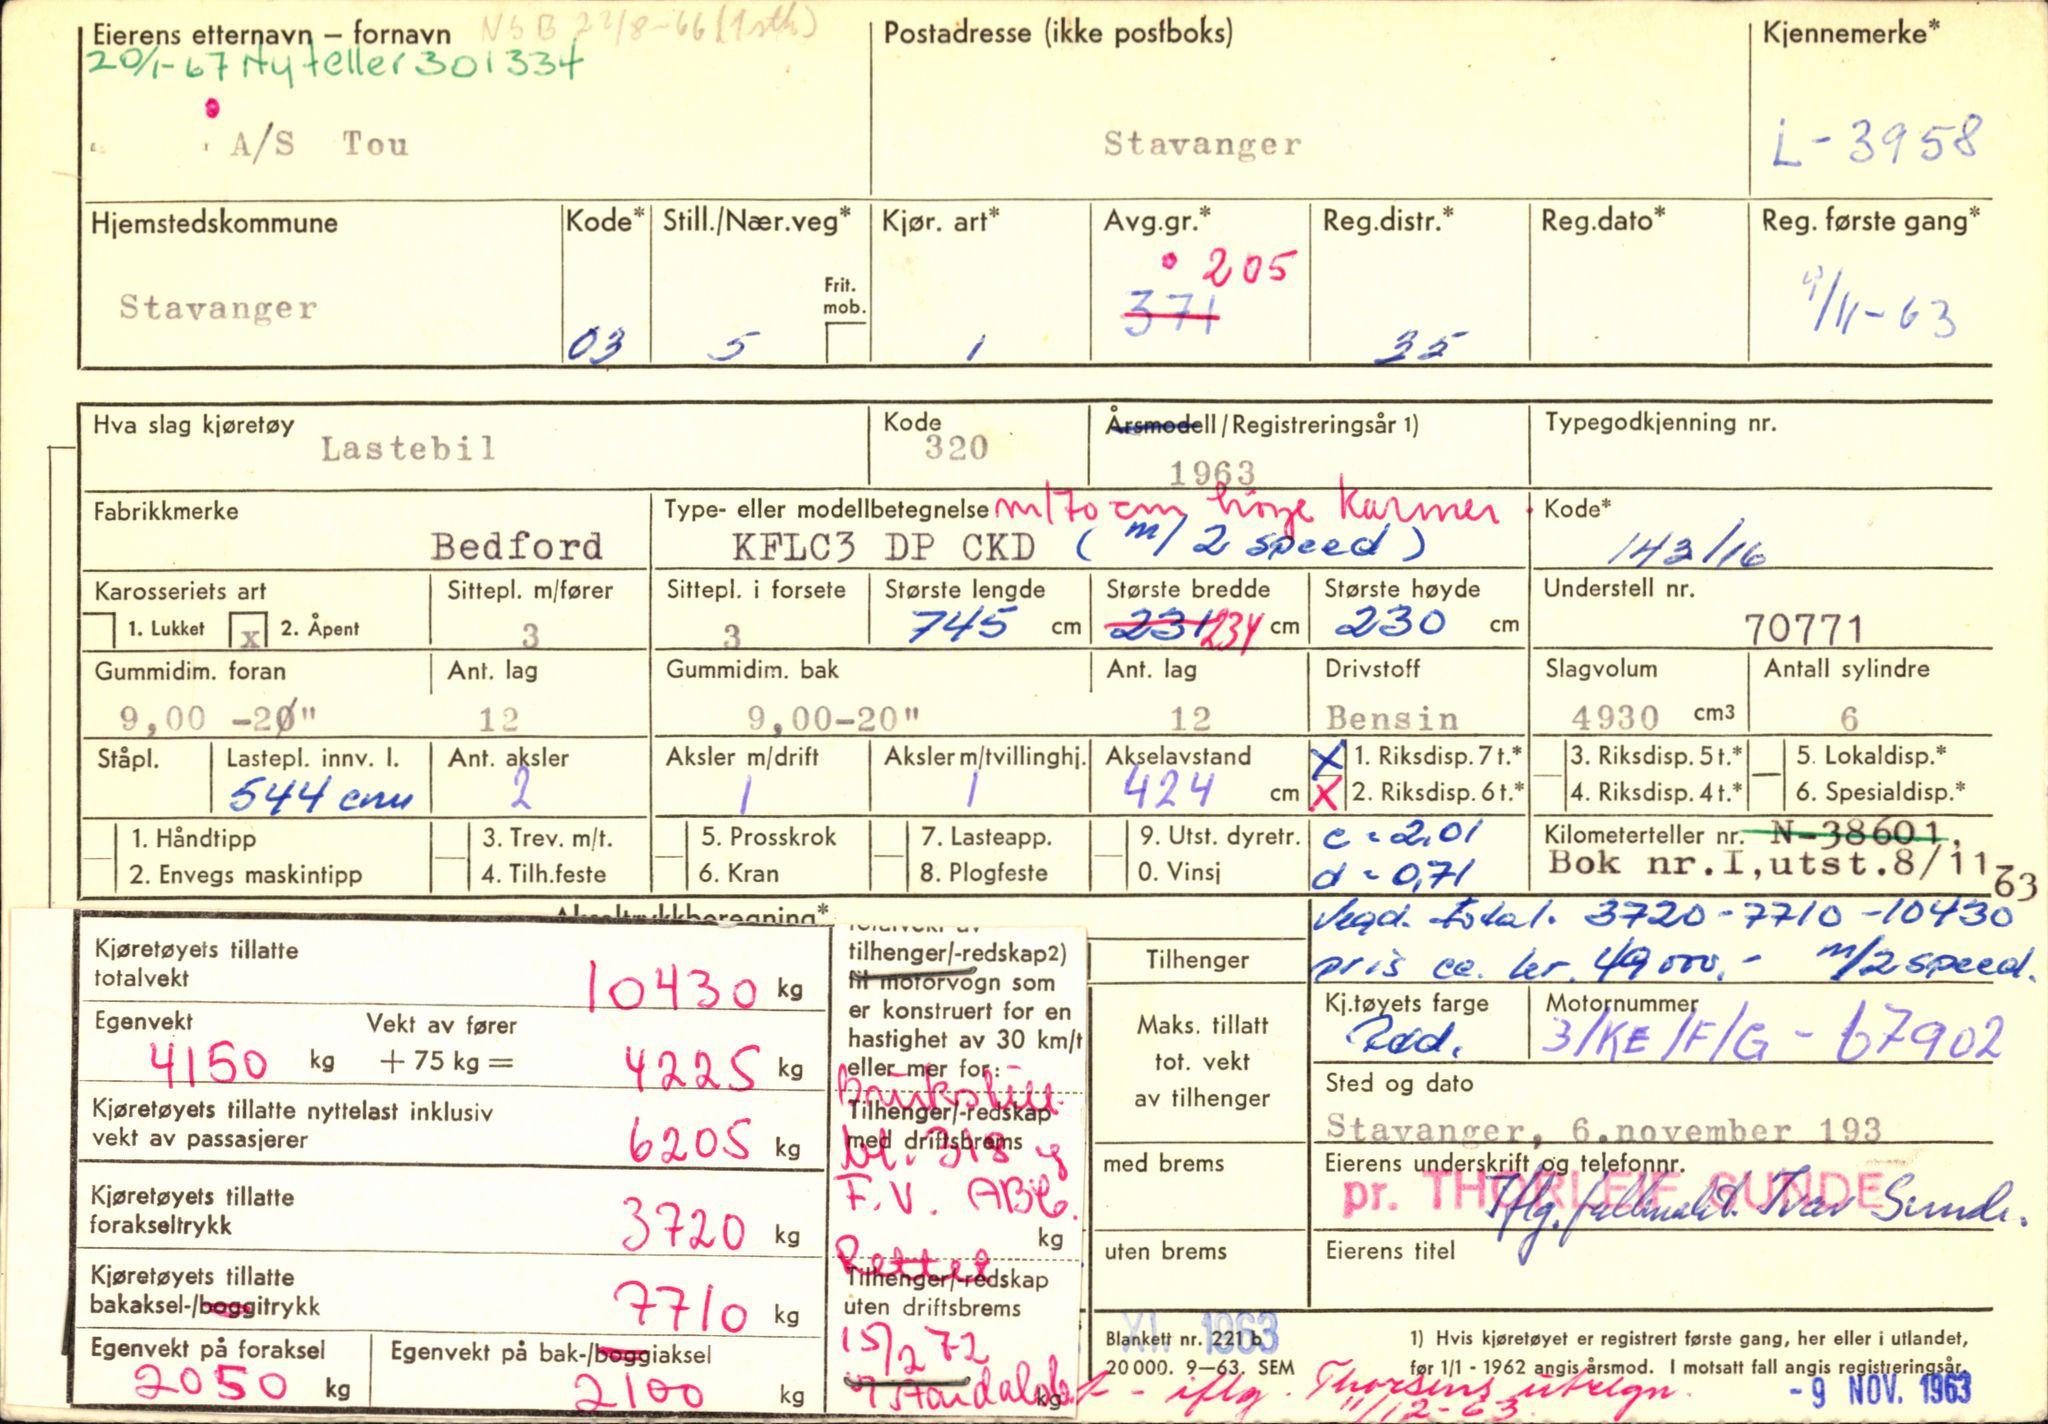 Eierens etternavn – fornavn NSB 22/8-66 (1 stk) Postadresse (ikke postboks) Kjennemerke*
20/1-67 Ny teller 301334
A/S Tou Stavanger L-3958
Hjemstedskommune Kode* Still./Nær.veg* Kjør. art* Avg.gr.* Reg.distr.* Reg.dato* Reg. første gang*
205
Frit. mob.
Stavanger 03 5 1 371 35 9/11-63
Hva slag kjøretøy Kode Årsmodell/Registreringsår 1) Typegodkjenning nr.
Lastebil 320 1963
Fabrikkmerke Type- eller modellbetegnelse m/70 cm høye karmer. Kode*
Bedford KFLC3 DP CKD (m/2 speed) 143/16
Karosseriets art Sittepl. m/fører Sittepl. i forsete Største lengde Største bredde Største høyde Understell nr.
1. Lukket x 2. Åpent 3 3 745 cm 231 234 cm 230 cm 70771
Gummidim. foran Ant. lag Gummidim. bak Ant. lag Drivstoff Slagvolum Antall sylindre
9,00 -20" 12 9,00-20" 12 Bensin 4930 cm3 6
Ståpl. Lastepl. innv. l. Ant. aksler Aksler m/drift Aksler m/tvillinghj. Akselavstand X 1. Riksdisp. 7 t.* 3. Riksdisp. 5 t.* 5. Lokaldisp.*
544 cm 2 1 1 424 cm X 2. Riksdisp. 6 t.* 4. Riksdisp. 4 t.* 6. Spesialdisp.*
1. Håndtipp 3. Trev. m/t. 5. Prosskrok 7. Lasteapp. 9. Utst. dyretr. c = 2,01 Kilometerteller nr. N-38601,
2. Envegs maskintipp 4. Tilh.feste 6. Kran 8. Plogfeste 0. Vinsj d = 0,71 Bok nr.I,utst.8/11 63
Akseltrykkberegning*
Vegd. total. 3720-7710-10430
pris ca. kr. 49000.- m/2 speed.
Kjøretøyets tillatte
totalvekt 10430 kg
Egenvekt Vekt av fører
4150 kg + 75 kg = 4225 kg
Kjøretøyets tillatte nyttelast inklusiv
vekt av passasjerer 6205 kg
Kjøretøyets tillatte
forakseltrykk 3720 kg
Kjøretøyets tillatte
bakaksel-/boggitrykk 7710 kg
Egenvekt på foraksel Egenvekt på bak-/boggiaksel
2050 kg 2100 kg
totalvekt av
tilhenger/-redskap2)
til motorvogn som
er konstruert for en
hastighet av 30 km/t
eller mer for:
Tilhenger/-redskap
med driftsbrems
bl. 318 g
F.V. ABC.
kg
Rettet
Tilhenger/-redskap
uten driftsbrems
15/2 72
kg
Tilhenger
Maks. tillatt
tot. vekt
av tilhenger
med brems
uten brems
Kj.tøyets farge Motornummer
Rød. 3/KE/F/G - 67902
Sted og dato
Stavanger, 6.november 193
Eierens underskrift og telefonnr.
pr. THORLEIF SUNDE
Iflg. fullmakt. Ivar Sunde.
Eierens titel
XI. 1963
Blankett nr. 221 b
20 000. 9–63. SEM
1) Hvis kjøretøyet er registrert første gang, her eller i utlandet,
før 1/1 - 1962 angis årsmod. I motsatt fall angis registreringsår.
iflg. Thorsens utregn.
11/12-63.
- 9 NOV. 1963